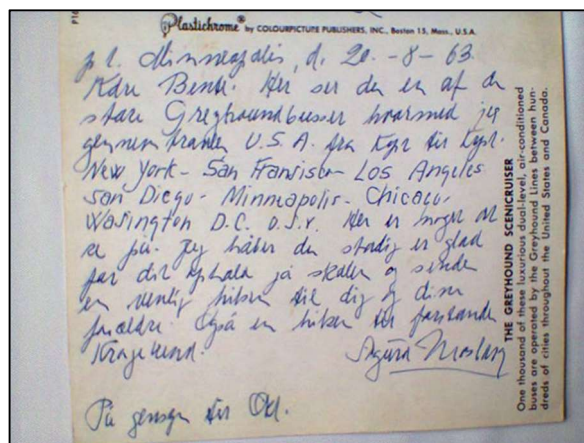 Plastichrome® by COLOURPICTURE PUBLISHERS, INC., Boston 15, Mass., U.S.A.
p.t. Minneapolis, d. 20.-8-63.
Kære Bent. Her ser du en af de
store Greyhoundbusser hvormed jeg
gennem U.S.A. fra Kyst til Kyst.
New York - San Francisco - Los Angeles
San Diego - Minneapolis - Chicago,
Washington D.C. o.s.v. Her er noget at
se på. Jeg håber du stadig er glad
for dit ophold på skolen og sender
en venlig hilsen til dig og dine
forældre. Også en hilsen til forstander
Kragelund.
På gensyn til Okt.
THE GREYHOUND SCENICRUISER
One thousand of these luxurious dual-level, air-conditioned
buses are operated by the Greyhound Lines between hun-
dreds of cities throughout the United States and Canada.